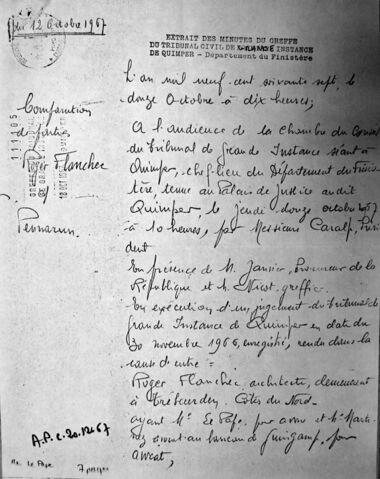 Du 12 Octobre 1967
EXTRAIT DES MINUTES DU GREFFE
DU TRIBUNAL CIVIL DE GRANDE INSTANCE
DE QUIMPER - Département du Finistère
L'an mil neuf cent soixante sept, le
douze Octobre à dix heures;
Comparution
de parties
111105
Roger Flanchec
Pennarun
A l'audience de la Chambre du Conseil
du tribunal de Grande Instance séant à
Quimper, chef-lieu du Département du Finis
tère tenue au Palais de Justice audit
Quimper, le jeudi douze octobre 1967
à 10 heures, par Messieurs Caralp, Prési
dent
En présence de M. Janvier, Procureur de la
République et M. Nicot, greffier
En exécution d'un jugement du tribunal de
grande Instance de Quimper en date du
30 novembre 1966, enregistré, rendu dans la
cause d'entre =
Roger Flanchec, architecte, demeurant
à Trébeurden, Côtes du Nord-
ayant Me Le Pape pour avoué et Me Marti-
avocat au barreau de Guingamp, pour
avocat,
A.P.C. 20.12.67
Me. Le Pape
7 pages